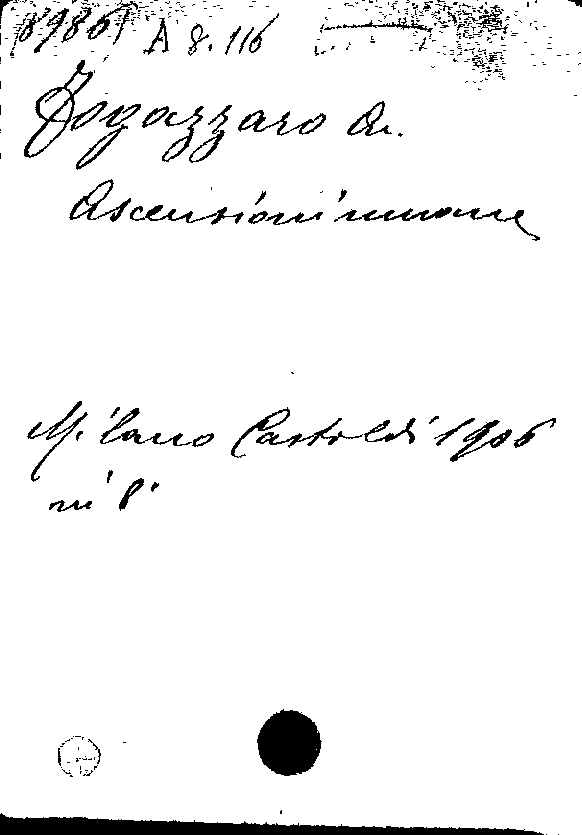 89861 A 8. 116
Fogazzaro An.
Ascensioni umane
Milano Castoldi 1906
in 8°